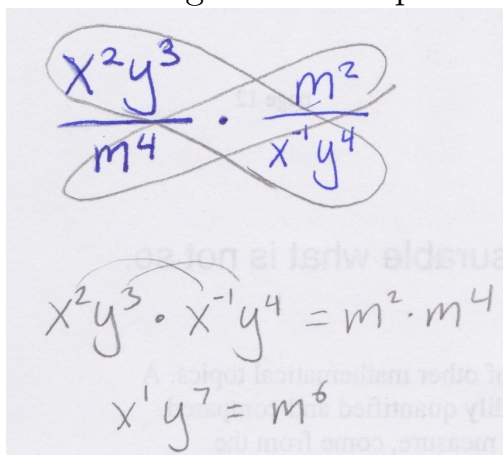 x²y³/m⁴ · m²/x⁻¹y⁴
x²y³ · x⁻¹y⁴ = m² · m⁴
x¹y⁷ = m⁶